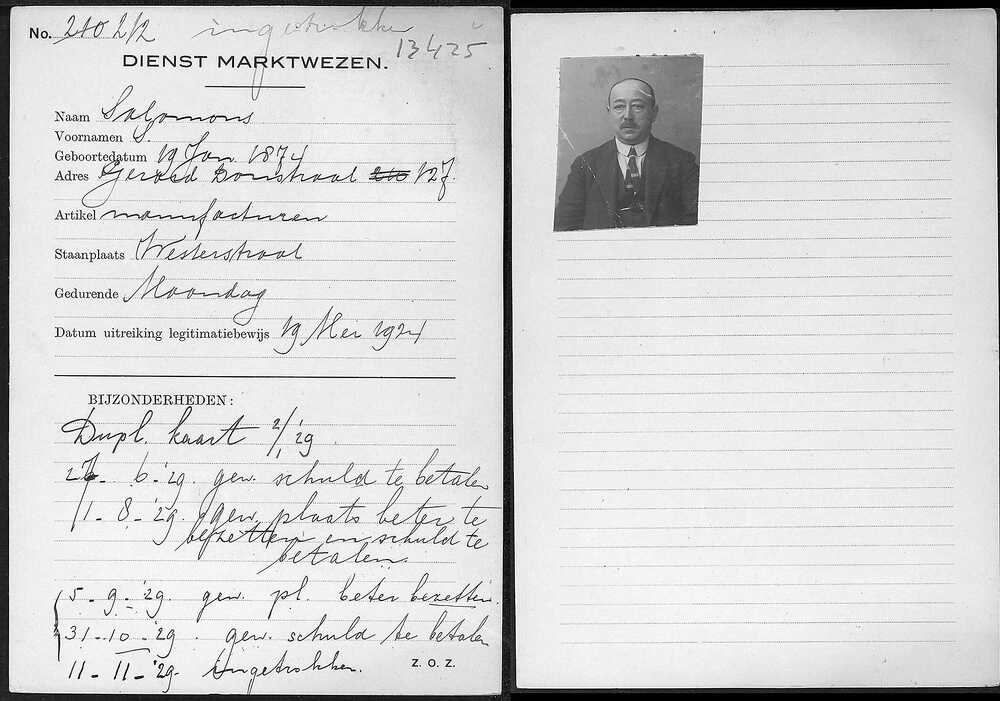 No. 210 212 ingetrokken
13425
DIENST MARKTWEZEN.
Naam Salomons
Voornamen S.
Geboortedatum 19 Jan. 1874
Adres Gerard Doustraat 210 127.
Artikel manufacturen
Staanplaats Westerstraat
Gedurende Maandag
Datum uitreiking legitimatiebewijs 19 Mei 1924
BIJZONDERHEDEN:
Dupl. kaart 2/1 '29
27-6-'29. gew. schuld te betalen
1-8-'29. gew. plaats beter te
bezetten en schuld te
betalen.
5-9-'29. gew. pl. beter bezetten.
31-10-'29. gew. schuld te betalen
11-11-'29. ingetrokken.
Z. O. Z.